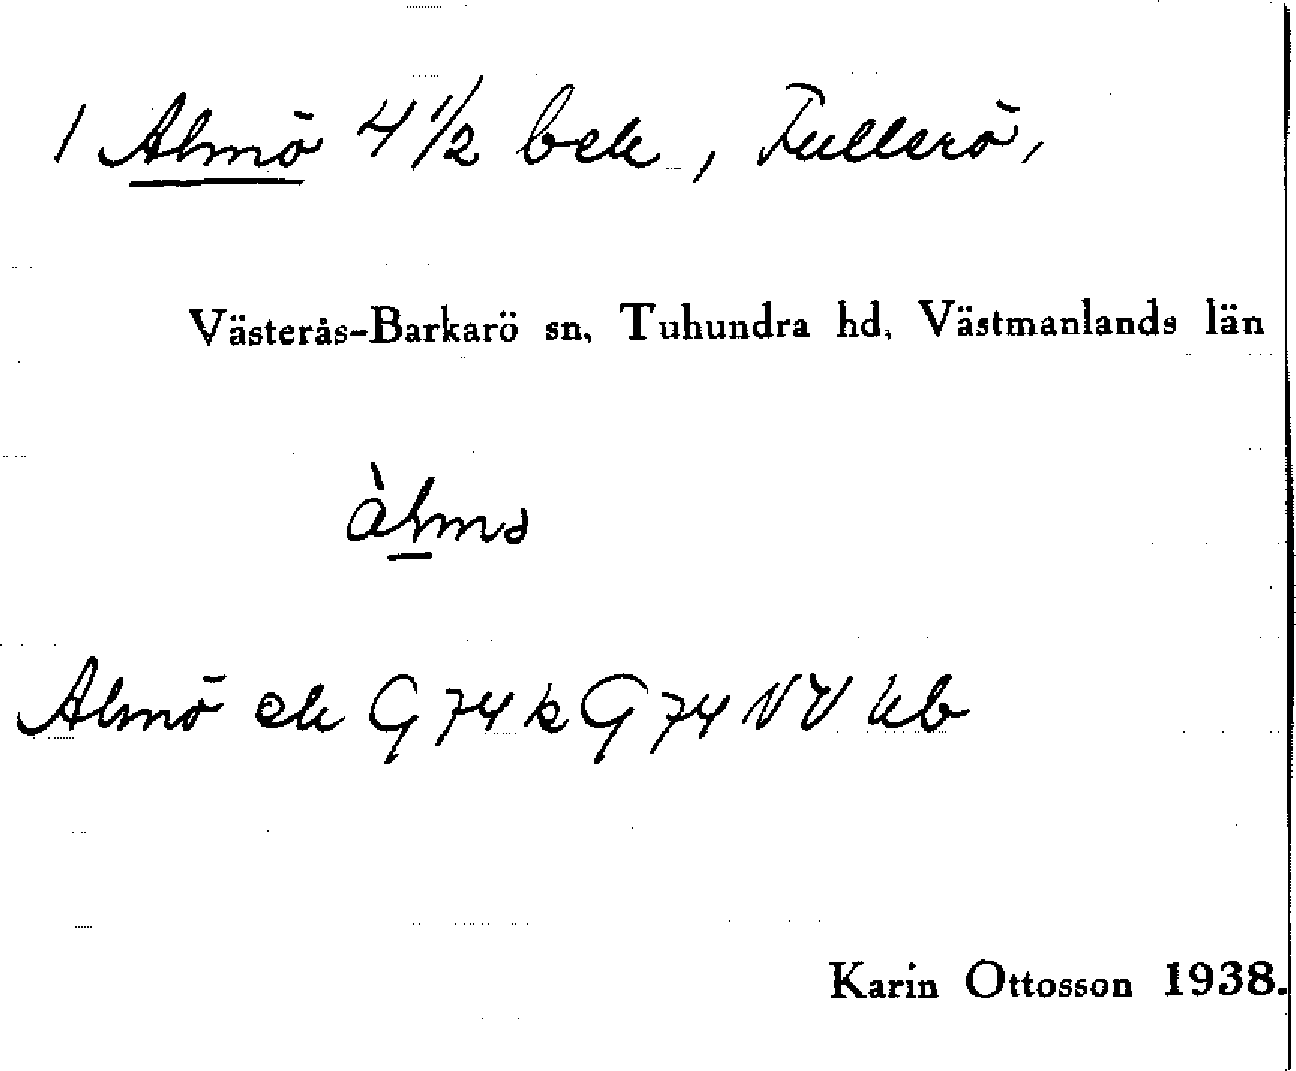 1 Almö 4 1/2 bek, Fullerö,
Västerås-Barkarö sn, Tuhundra hd, Västmanlands län
àlmo
Almö ek G 74 k G 74 NV kb
Karin Ottosson 1938.